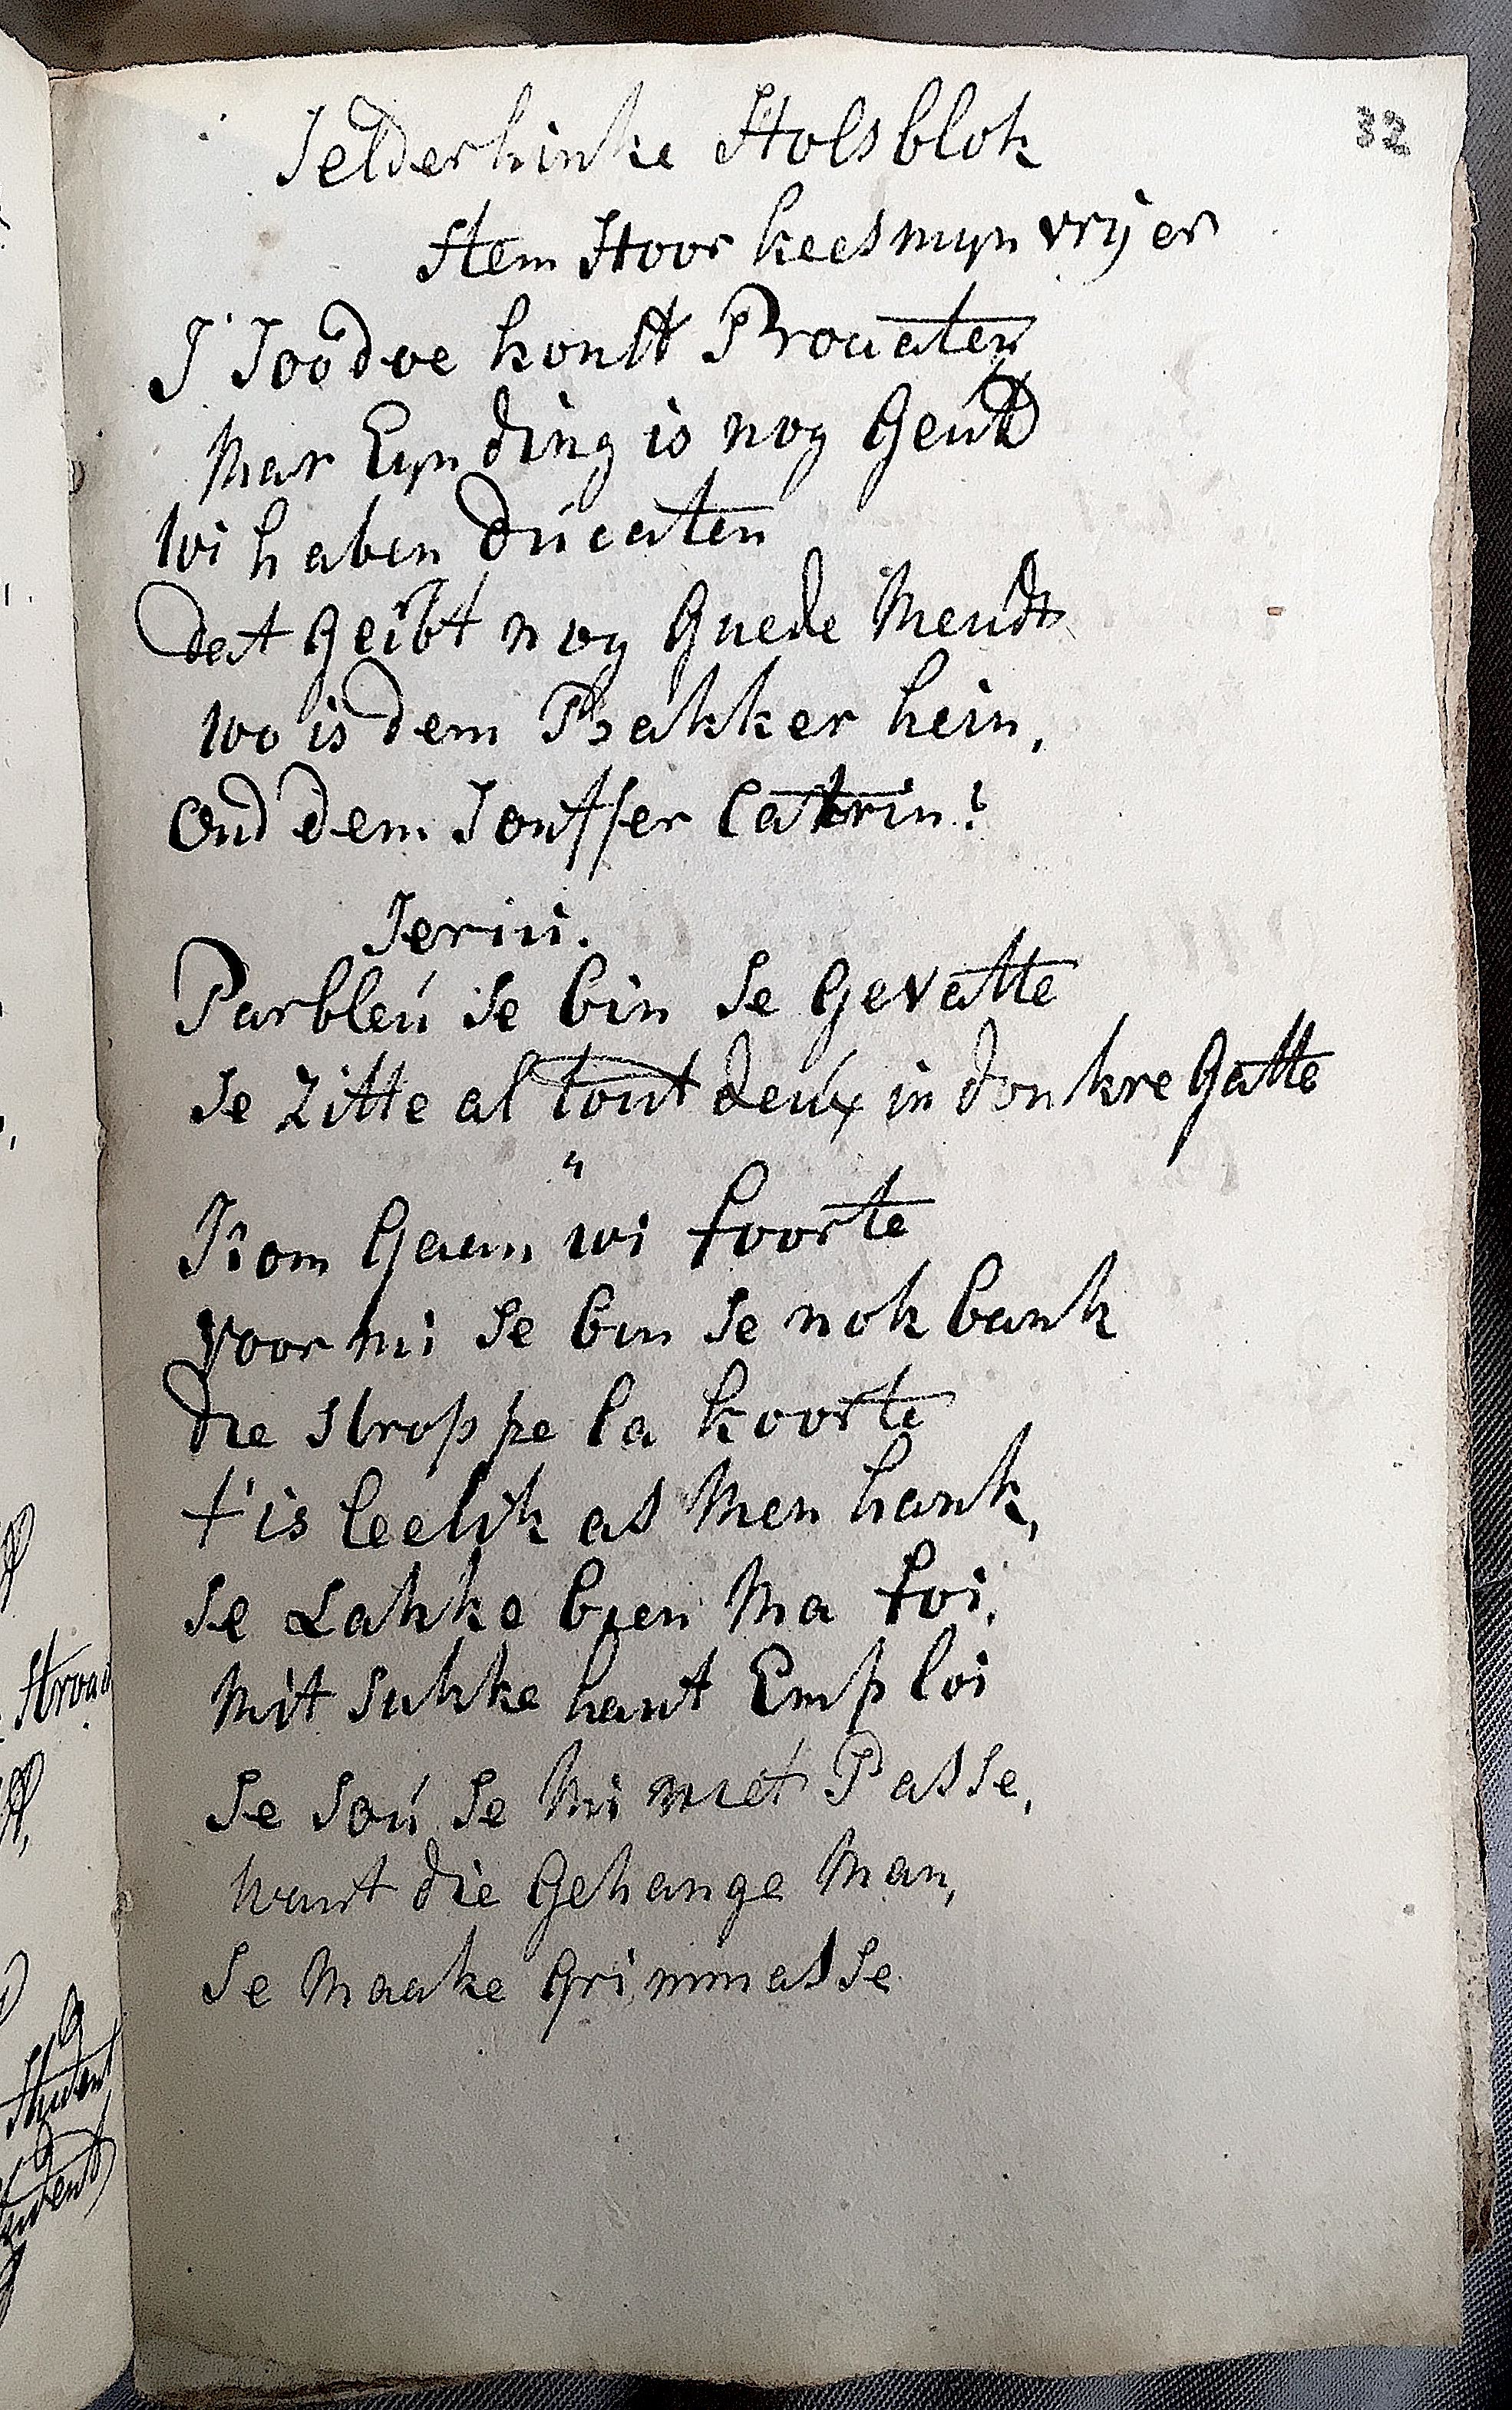 32
Jelderhinke Holsblok
Stem Hoor kees myn vryer
J Joodve konst Prouaten
Mar Eyn ding is nog Geud
Wi haben Ducaten
dat Geibt nog Guede Meudt
Wo is dem Bakker hein,
Ond dem Jouffer Catrin!
Jeriu.
Parbleú se bin se Gevatte
se Zitte al tout deúx in donkre Gatte
"
Kom Gaan wi foorte
voor mi se bin se nok bank
die stroppe la koorte
t'is leelik as Men hank,
se Lakke bien Ma foi,
Mit sukke hant Emploi
se soú se Mi niet Passe,
Want die Gehange Man,
se Maake Grimmasse